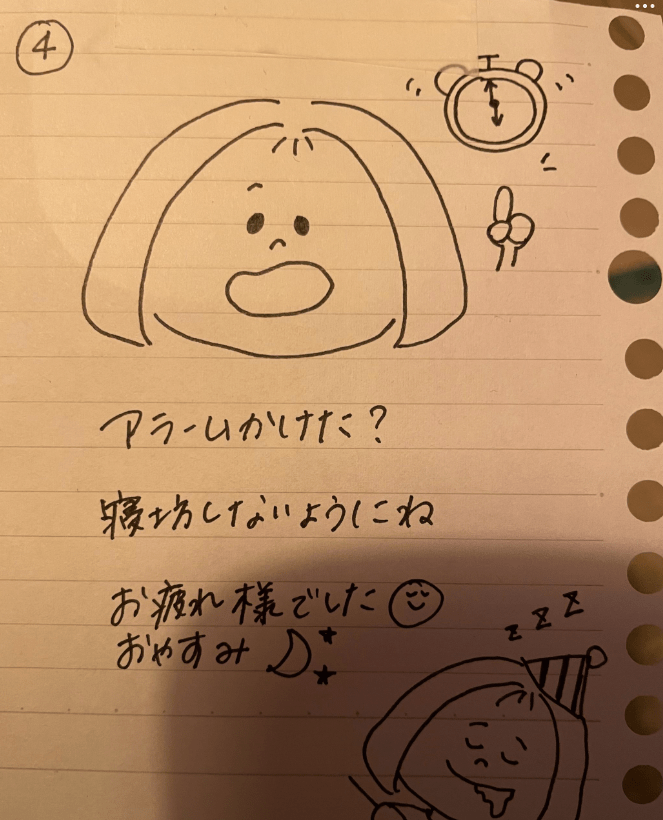 ④
アラームかけた？
寝坊しないようにね
お疲れ様でした
おやすみ
z z z